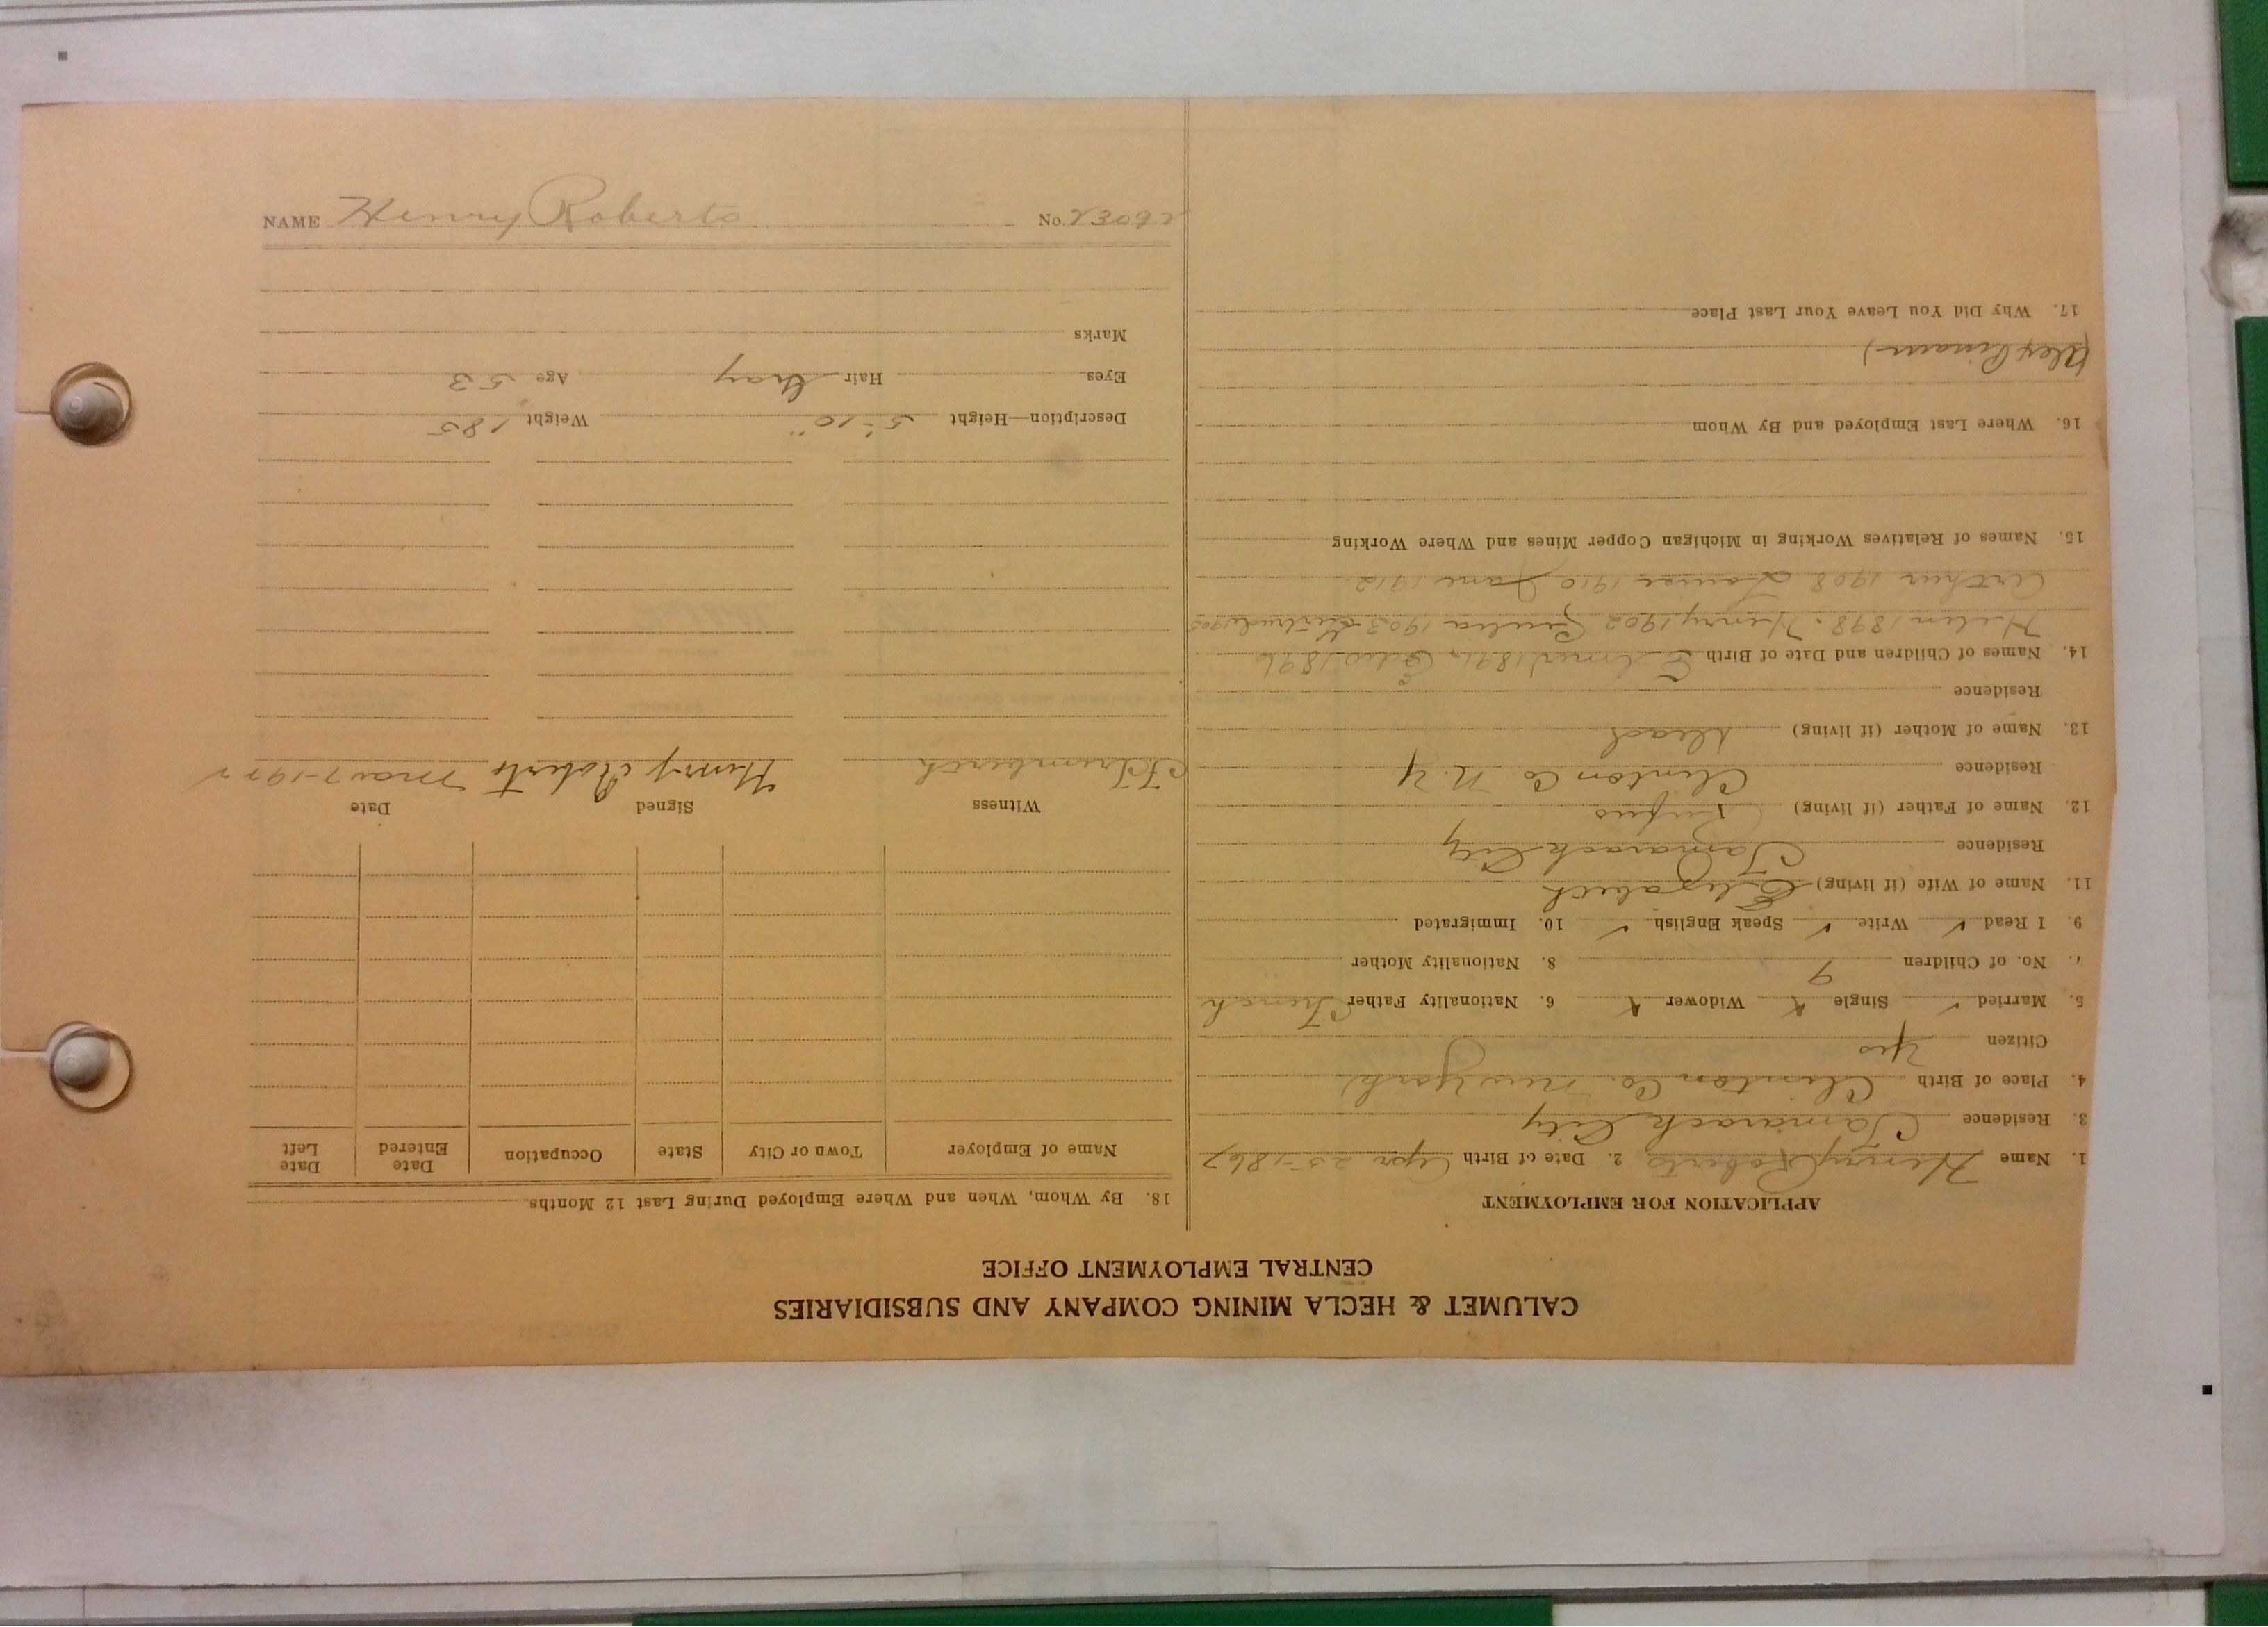 CALUMET & HECLA MINING COMPANY AND SUBSIDIARIES
CENTRAL EMPLOYMENT OFFICE
APPLICATION FOR EMPLOYMENT
1. Name Henry Roberts 2. Date of Birth Apr 25-1867
3. Residence Tamarack City
4. Place of Birth Clinton Co. New York
Citizen Yes
5. Married ✓ Single x Widower x 6. Nationality Father French
No. of Children 9 8. Nationality Mother
9. I Read ✓ Write ✓ Speak English ✓ 10. Immigrated
11. Name of Wife (if living) Elizabeth
Residence Tamarack City
12. Name of Father (if living) Rufus
Residence Clinton Co N.Y
13. Name of Mother (if living) Dead
Residence
14. Names of Children and Date of Birth 1896
Helen 1898. Henry 1902 1903 Gertrude 1905
Arthur 1908 1910 Jane 1912.
15. Names of Relatives Working in Michigan Copper Mines and Where Working
16. Where Last Employed and By Whom
17. Why Did You Leave Your Last Place
18. By Whom, When and Where Employed During Last 12 Months
Name of Employer Town or City State Occupation Date Entered Date Left
Witness Signed Date
Henry Roberts Mar 7-1922
Description—Height 5'-10" Weight 185
Eyes Hair Gray Age 53
Marks
NAME Henry Roberts No. 23092